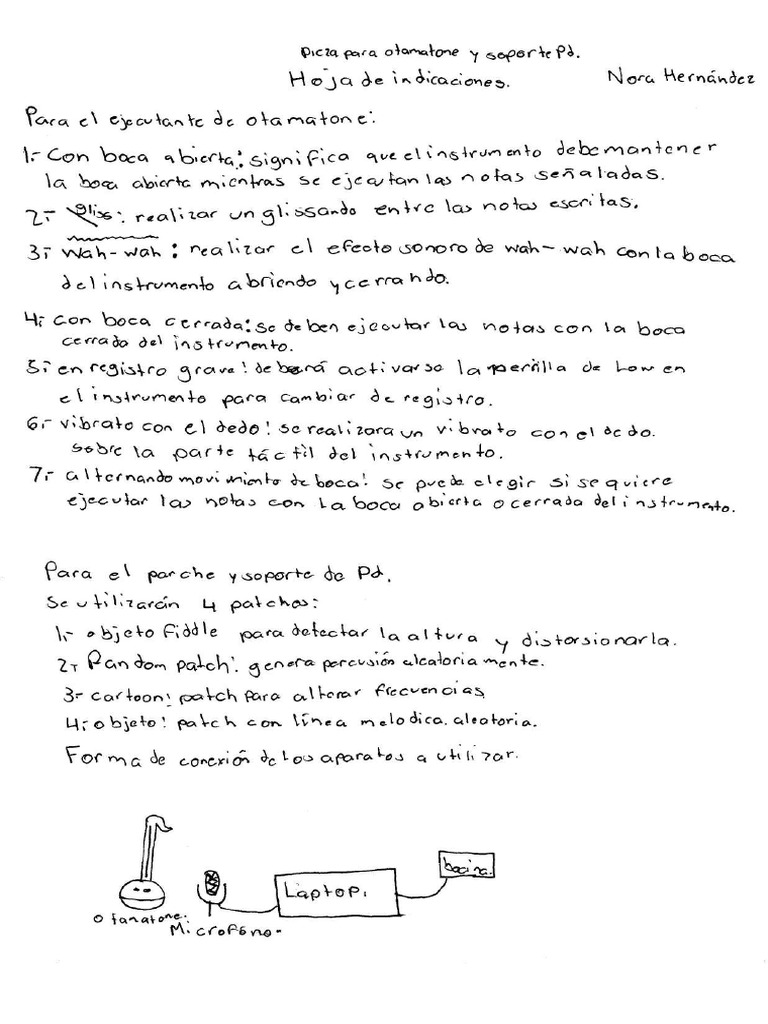 Pieza para otamatone y soporte Pd.
Hoja de indicaciones. Nora Hernández
Para el ejecutante de otamatone:
1.- Con boca abierta: significa que el instrumento debe mantener
la boca abierta mientras se ejecutan las notas señaladas.
2.- gliss: realizar un glissando entre las notas escritas.
3.- wah-wah: realizar el efecto sonoro de wah-wah con la boca
del instrumento abriendo y cerrando.
4.- con boca cerrada: se deben ejecutar las notas con la boca
cerrada del instrumento.
5.- en registro grave: deberá activarse la perilla de Low en
el instrumento para cambiar de registro.
6.- vibrato con el dedo: se realizara un vibrato con el dedo.
sobre la parte táctil del instrumento.
7.- alternando movimiento de boca: se puede elegir si se quiere
ejecutar las notas con la boca abierta o cerrada del instrumento.
Para el parche y soporte de Pd.
Se utilizarán 4 patches:
1.- objeto fiddle para detectar la altura y distorsionarla.
2.- Random patch: genera percusión aleatoriamente.
3.- cartoon: patch para alterar frecuencias
4.- objeto: patch con línea melodica aleatoria.
Forma de conexión de los aparatos a utilizar.
bocina.
Laptop.
Otamatone.
Microfóno.